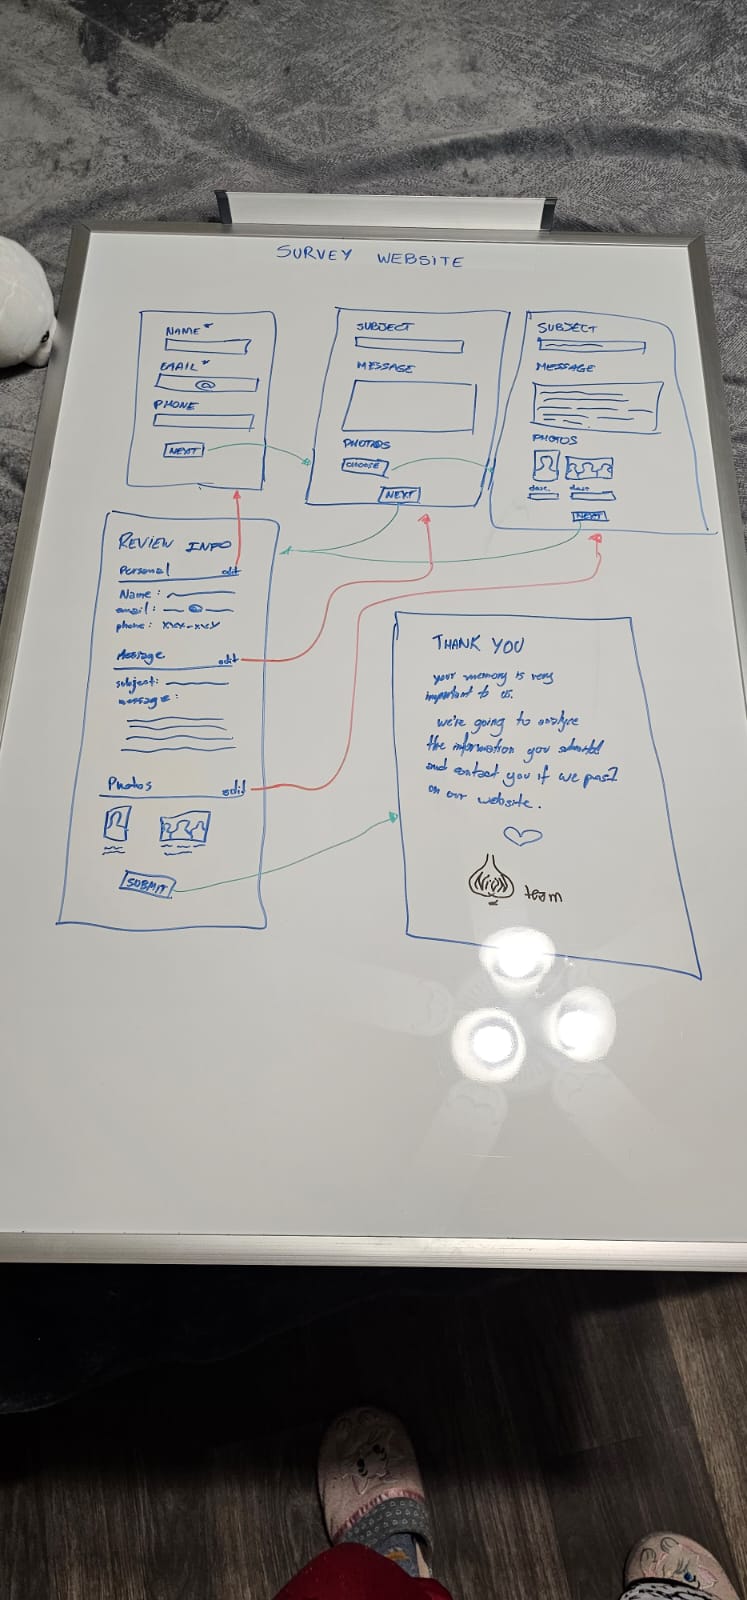 SURVEY WEBSITE
NAME*
EMAIL*
@
PHONE
NEXT
SUBJECT
MESSAGE
PHOTOS
CHOOSE
NEXT
SUBJECT
MESSAGE
PHOTOS
NEXT
REVIEW INFO
Personal edit
Name:
email: @
phone: xxx-xxxx
Message edit
subject:
message:
Photos edit
SUBMIT
THANK YOU
your memory is very
important to us.
we're going to analyze
the information you submitted
and contact you if we post
on our website.
team